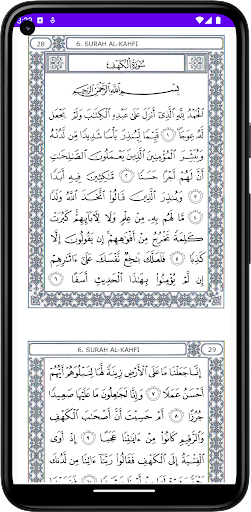 28
6. SURAH AL-KAHFI
سُورَةُ الْكَهْفِ
بِسْمِ اللَّهِ الرَّحْمَٰنِ الرَّحِيمِ
الْحَمْدُ لِلَّهِ الَّذِي أَنْزَلَ عَلَىٰ عَبْدِهِ الْكِتَابَ وَلَمْ يَجْعَلْ
لَهُ عِوَجًا ١ قَيِّمًا لِيُنْذِرَ بَأْسًا شَدِيدًا مِنْ لَدُنْهُ
وَيُبَشِّرَ الْمُؤْمِنِينَ الَّذِينَ يَعْمَلُونَ الصَّالِحَاتِ
أَنَّ لَهُمْ أَجْرًا حَسَنًا ٢ مَاكِثِينَ فِيهِ أَبَدًا
٣ وَيُنْذِرَ الَّذِينَ قَالُوا اتَّخَذَ اللَّهُ وَلَدًا
٤ مَا لَهُمْ بِهِ مِنْ عِلْمٍ وَلَا لِآبَائِهِمْ كَبُرَتْ
كَلِمَةً تَخْرُجُ مِنْ أَفْوَاهِهِمْ إِنْ يَقُولُونَ إِلَّا
كَذِبًا ٥ فَلَعَلَّكَ بَاخِعٌ نَفْسَكَ عَلَىٰ آثَارِهِمْ
إِنْ لَمْ يُؤْمِنُوا بِهَٰذَا الْحَدِيثِ أَسَفًا ٦
6. SURAH AL-KAHFI
29
إِنَّا جَعَلْنَا مَا عَلَى الْأَرْضِ زِينَةً لَهَا لِنَبْلُوَهُمْ أَيُّهُمْ
أَحْسَنُ عَمَلًا ٧ وَإِنَّا لَجَاعِلُونَ مَا عَلَيْهَا صَعِيدًا
جُرُزًا ٨ أَمْ حَسِبْتَ أَنَّ أَصْحَابَ الْكَهْفِ
وَالرَّقِيمِ كَانُوا مِنْ آيَاتِنَا عَجَبًا ٩ إِذْ أَوَى
الْفِتْيَةُ إِلَى الْكَهْفِ فَقَالُوا رَبَّنَا آتِنَا مِنْ لَدُنْكَ